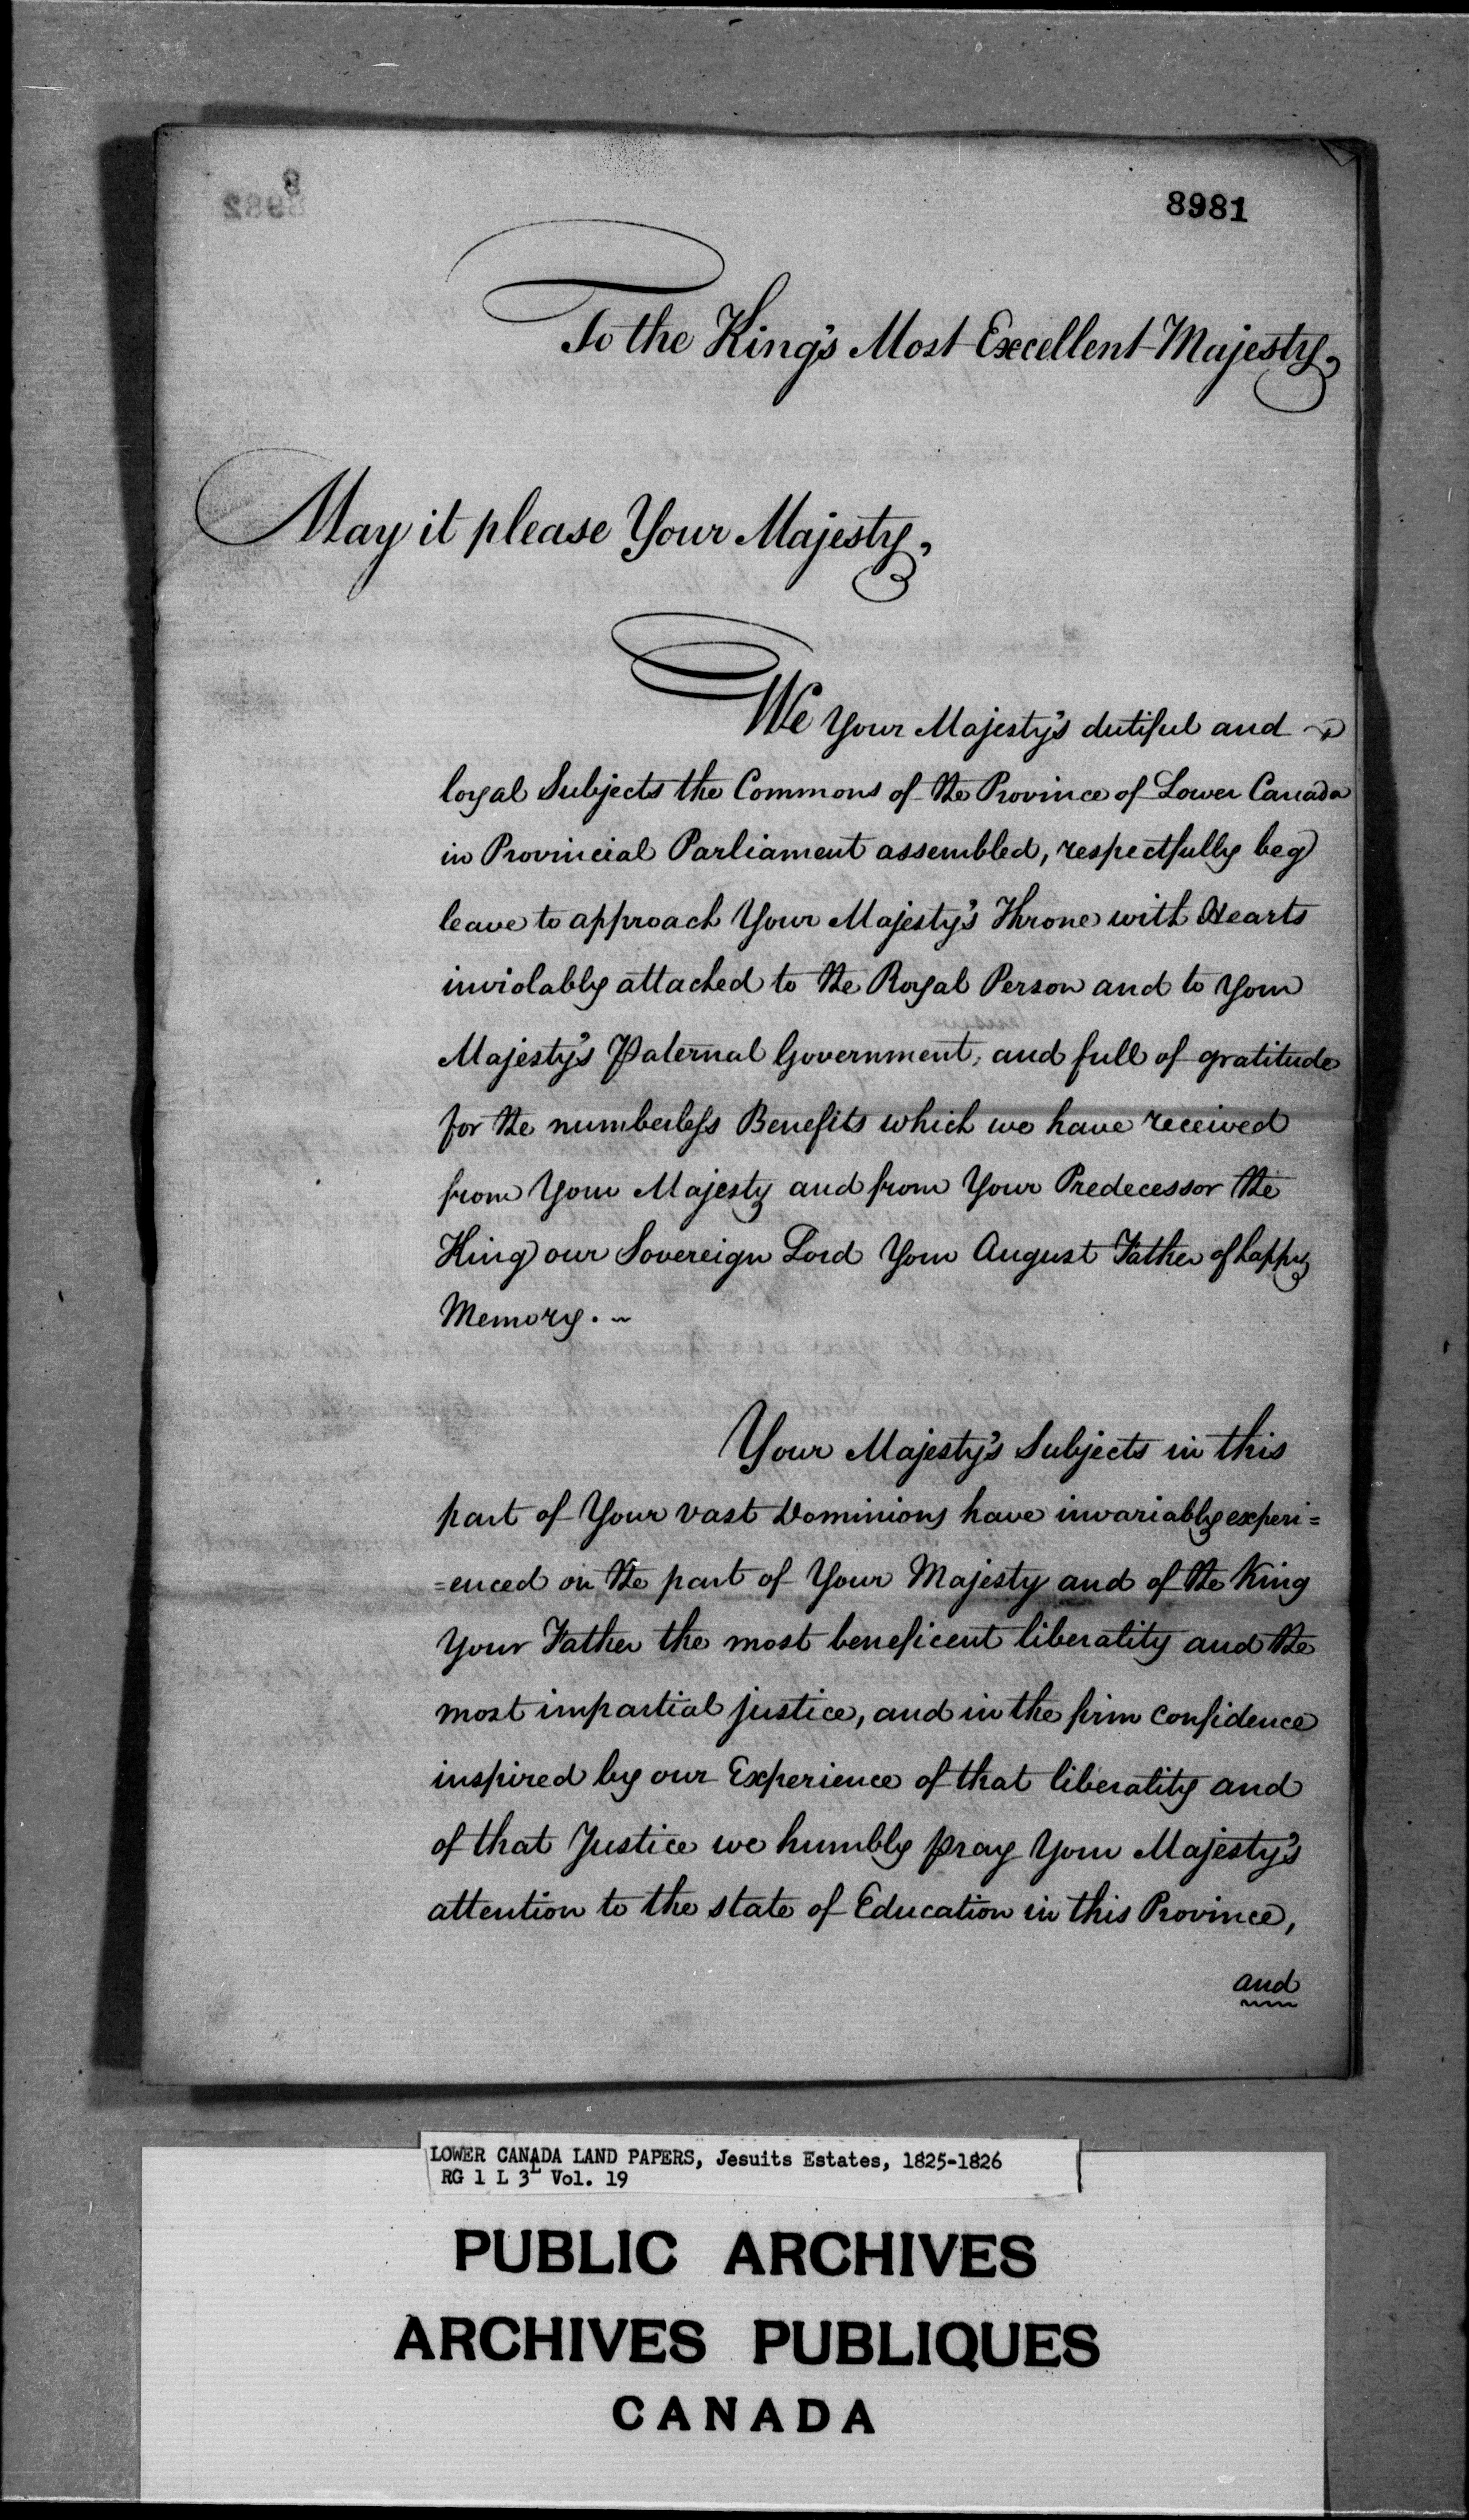 8981
To the King's Most Excellent Majesty,
May it please Your Majesty,
We Your Majesty's dutiful and
loyal Subjects the Commons of the Province of Lower Canada
in Provincial Parliament assembled, respectfully beg
leave to approach Your Majesty's Throne with Hearts
inviolably attached to the Royal Person and to Your
Majesty's Paternal Government, and full of gratitude
for the numberless Benefits which we have received
from Your Majesty and from Your Predecessor the
King our Sovereign Lord Your August Father of happy
Memory. ~
Your Majesty's Subjects in this
part of Your vast Dominions have invariably experi=
=enced on the part of Your Majesty and of the King
Your Father the most beneficent liberality and the
most impartial justice, and in the firm confidence
inspired by our Experience of that liberality and
of that Justice we humbly pray Your Majesty's
attention to the state of Education in this Province,
and
LOWER CANADA LAND PAPERS, Jesuits Estates, 1825-1826
RG 1 L 3L Vol. 19
PUBLIC ARCHIVES
ARCHIVES PUBLIQUES
CANADA